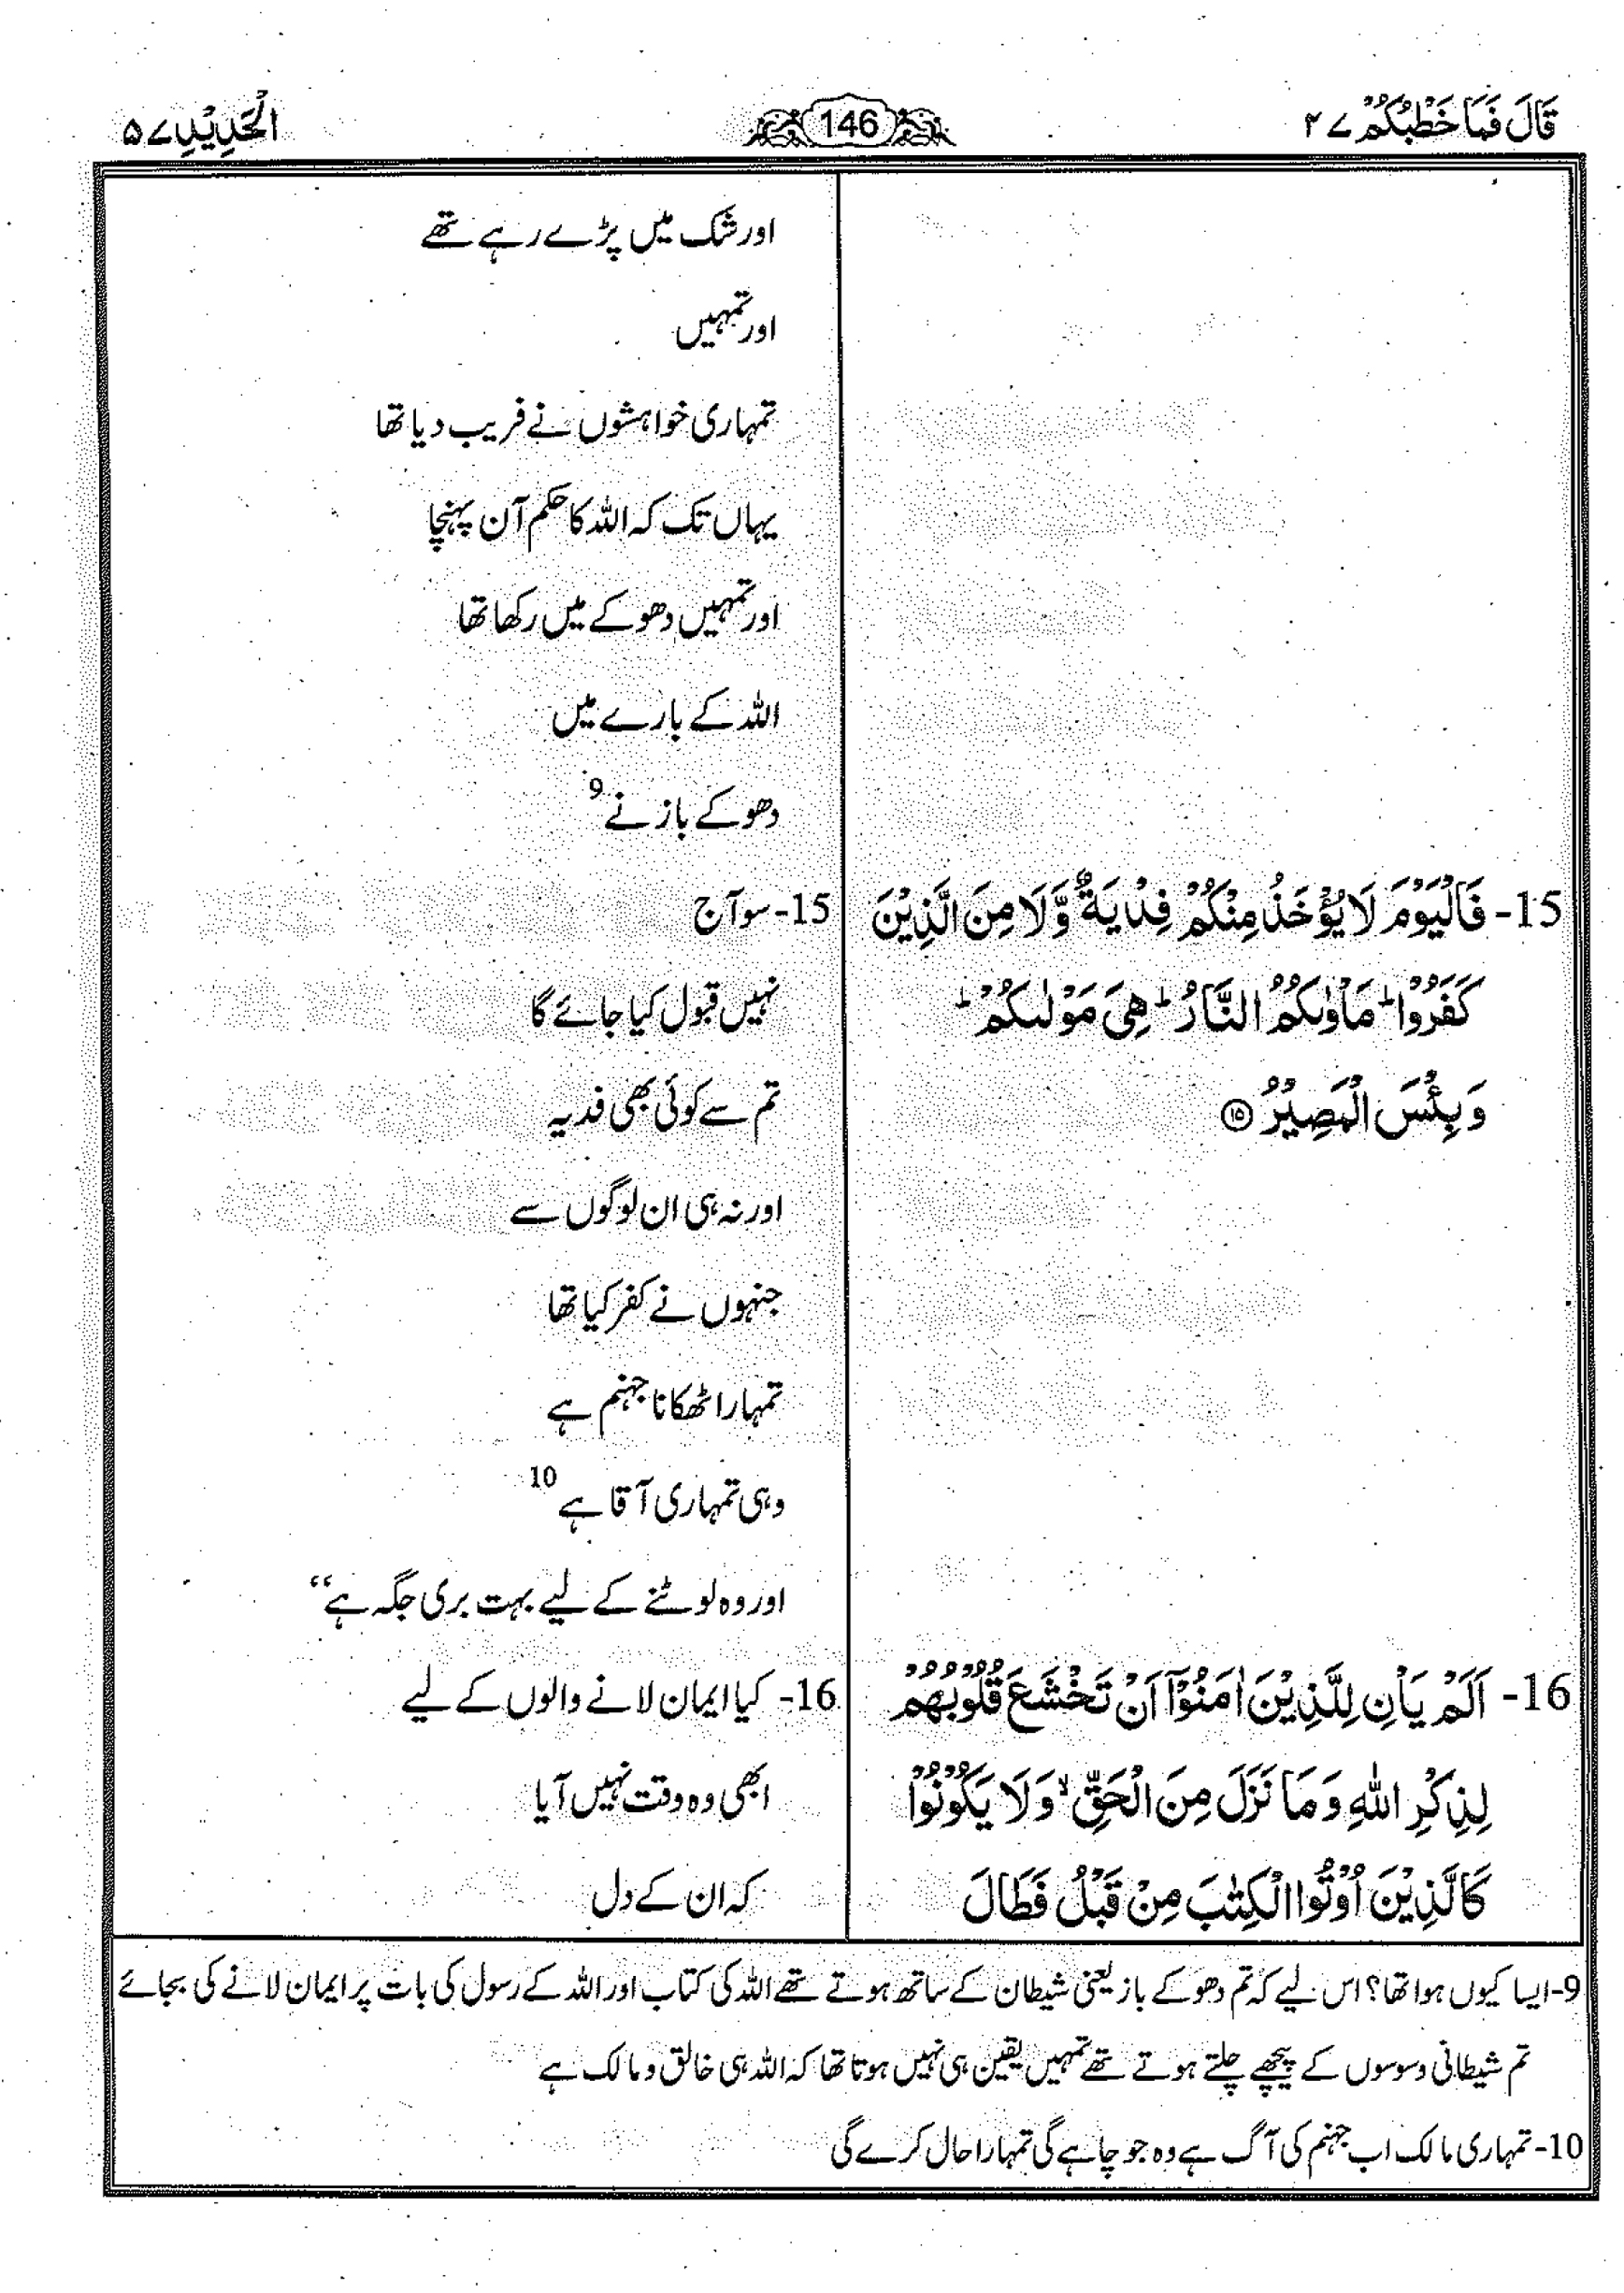 قَالَ فَمَا خَطْبُكُمْ ۲۷
146
الْحَدِيْدِ ۵۷
اور شک میں پڑے رہے تھے
اور تمہیں
تمہاری خواہشوں نے فریب دیا تھا
یہاں تک کہ اللہ کا حکم آن پہنچا
اور تمہیں دھوکے میں رکھا تھا
اللہ کے بارے میں
دھوکے باز نے 9
15- فَالْيَوْمَ لَا يُؤْخَذُ مِنْكُمْ فِدْيَةٌ وَّلَا مِنَ الَّذِيْنَ
كَفَرُوْا ؕ مَاْوٰىكُمُ النَّارُ ؕ هِيَ مَوْلٰىكُمْ ؕ
وَبِئْسَ الْمَصِيْرُ ۝۱۵
15- سو آج
نہیں قبول کیا جائے گا
تم سے کوئی بھی فدیہ
اور نہ ہی ان لوگوں سے
جنہوں نے کفر کیا تھا
تمہارا ٹھکانا جہنم ہے
وہی تمہاری آقا ہے 10
اور وہ لوٹنے کے لیے بہت بری جگہ ہے“
16- اَلَمْ يَاْنِ لِلَّذِيْنَ اٰمَنُوْٓا اَنْ تَخْشَعَ قُلُوْبُهُمْ
لِذِكْرِ اللّٰهِ وَمَا نَزَلَ مِنَ الْحَقِّ ۙ وَلَا يَكُوْنُوْا
كَالَّذِيْنَ اُوْتُوا الْكِتٰبَ مِنْ قَبْلُ فَطَالَ
16- کیا ایمان لانے والوں کے لیے
ابھی وہ وقت نہیں آیا
کہ ان کے دل
9- ایسا کیوں ہوا تھا؟ اس لیے کہ تم دھوکے باز یعنی شیطان کے ساتھ ہوتے تھے اللہ کی کتاب اور اللہ کے رسول کی بات پر ایمان لانے کی بجائے
تم شیطانی وسوسوں کے پیچھے چلتے ہوتے تھے تمہیں یقین ہی نہیں ہوتا تھا کہ اللہ ہی خالق و مالک ہے
10- تمہاری مالک اب جہنم کی آگ ہے وہ جو چاہے گی تمہارا حال کرے گی